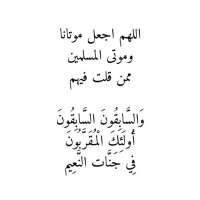 اللهم اجعل موتانا
وموتى المسلمين
ممن قلت فيهم
وَالسَّابِقُونَ السَّابِقُونَ
أُولَئِكَ الْمُقَرَّبُونَ
فِي جَنَّاتِ النَّعِيمِ